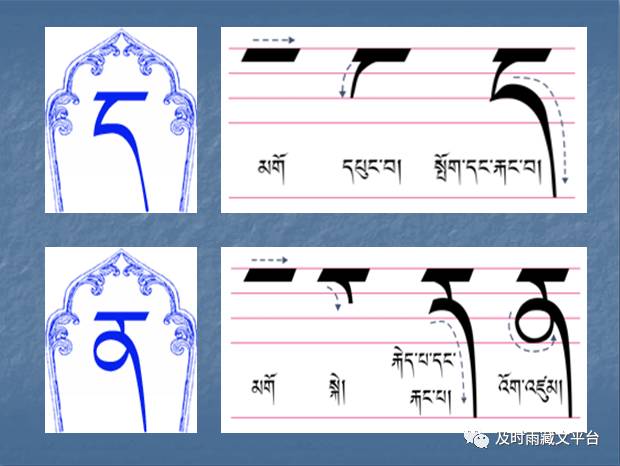 ད
མགོ  དཔུང་བ།  སྒྲོག་དང་རྐང་བ།
ན
མགོ  སྐེ།  རྐེད་པ་དང་  འོག་འཛུམ།
རྐང་པ།
及时雨藏文平台